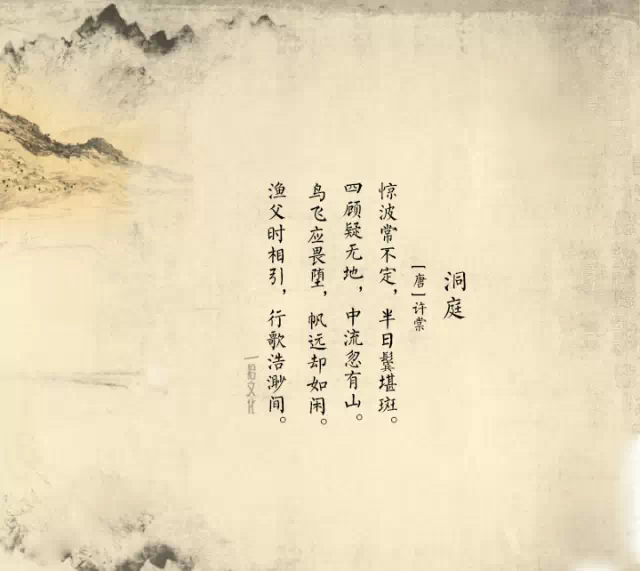 洞庭
[唐]许棠
惊波常不定，半日鬓堪斑。
四顾疑无地，中流忽有山。
鸟飞应畏堕，帆远却如闲。
渔父时相引，行歌浩渺间。